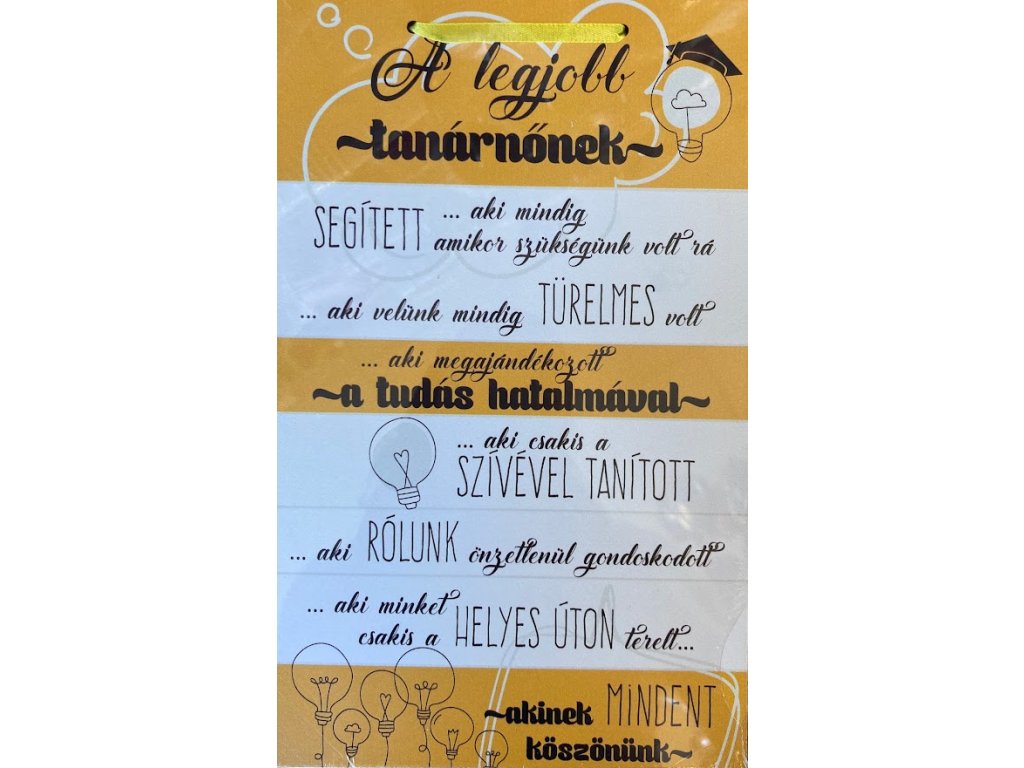 A legjobb
~tanárnőnek~
SEGÍTETT ... aki mindig
amikor szükségünk volt rá
... aki velünk mindig TÜRELMES volt
... aki megajándékozott
~a tudás hatalmával~
... aki csakis a
SZÍVÉVEL TANÍTOTT
... aki RÓLUNK önzetlenül gondoskodott
... aki minket
csakis a HELYES ÚTON terelt...
~akinek MINDENT
köszönünk~